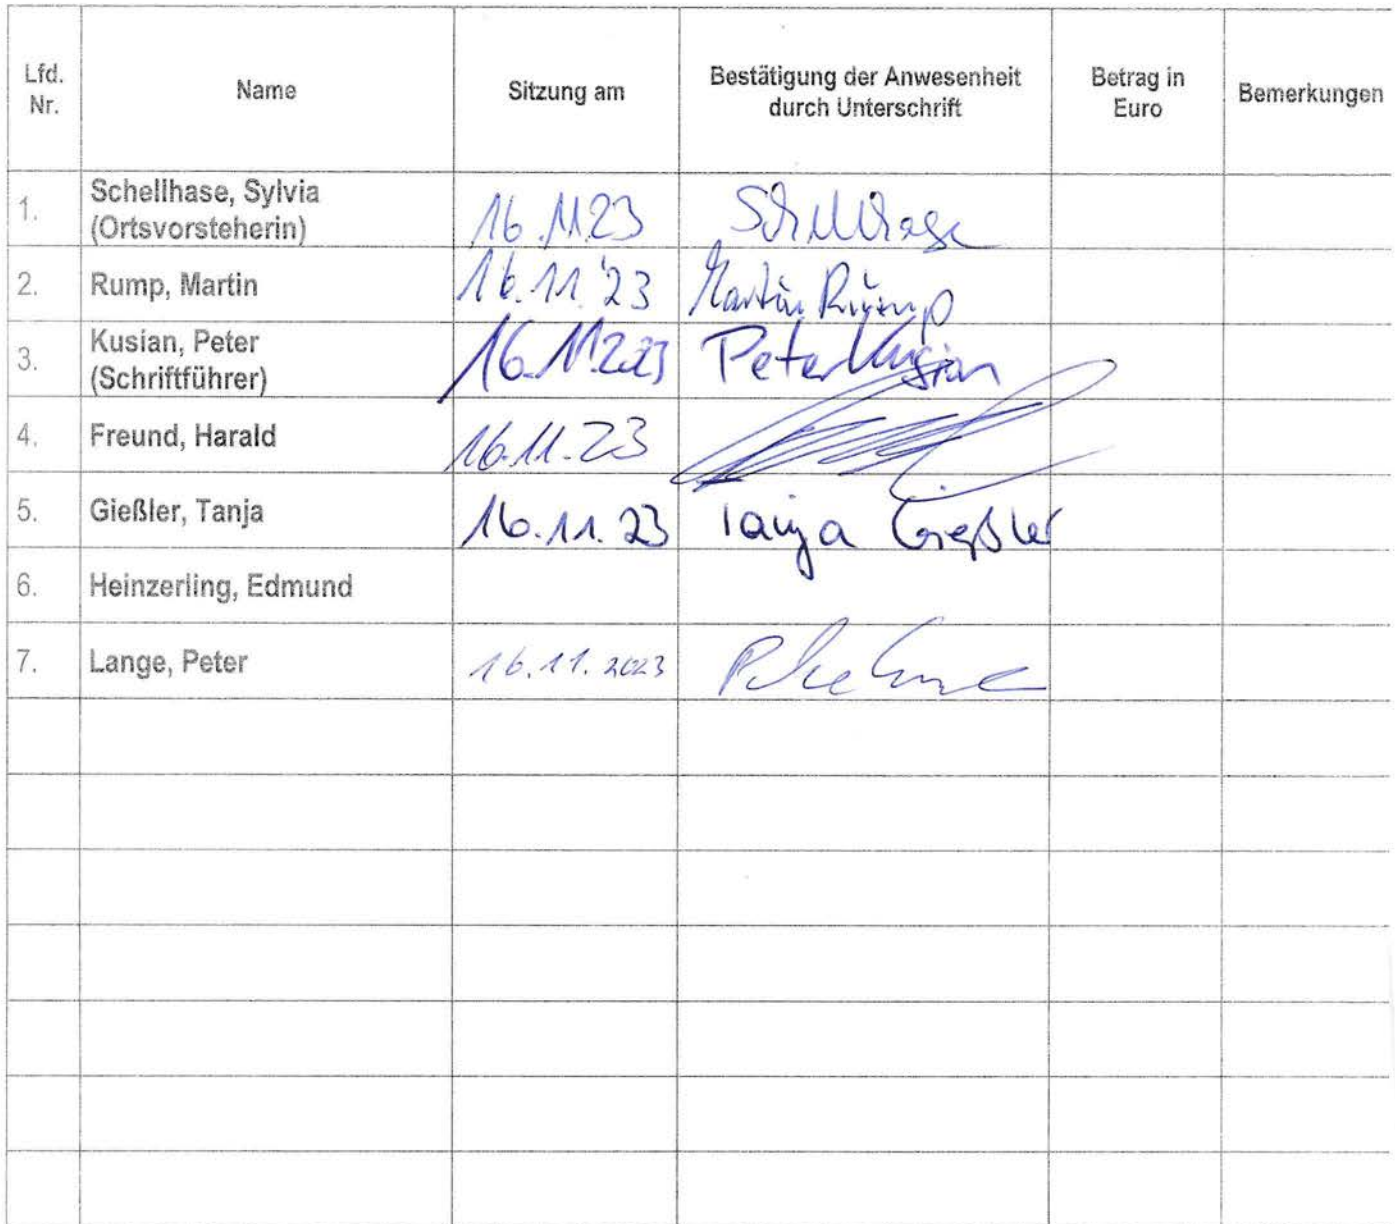 Lfd. Nr. Name Sitzung am Bestätigung der Anwesenheit durch Unterschrift Betrag in Euro Bemerkungen
1. Schellhase, Sylvia (Ortsvorsteherin) 16.11.23 Schellhase
2. Rump, Martin 16.11.'23 Martin Rump
3. Kusian, Peter (Schriftführer) 16.11.2023 Peter Kusian
4. Freund, Harald 16.11.23
5. Gießler, Tanja 16.11.23 Tanja Gießler
6. Heinzerling, Edmund
7. Lange, Peter 16.11.2023